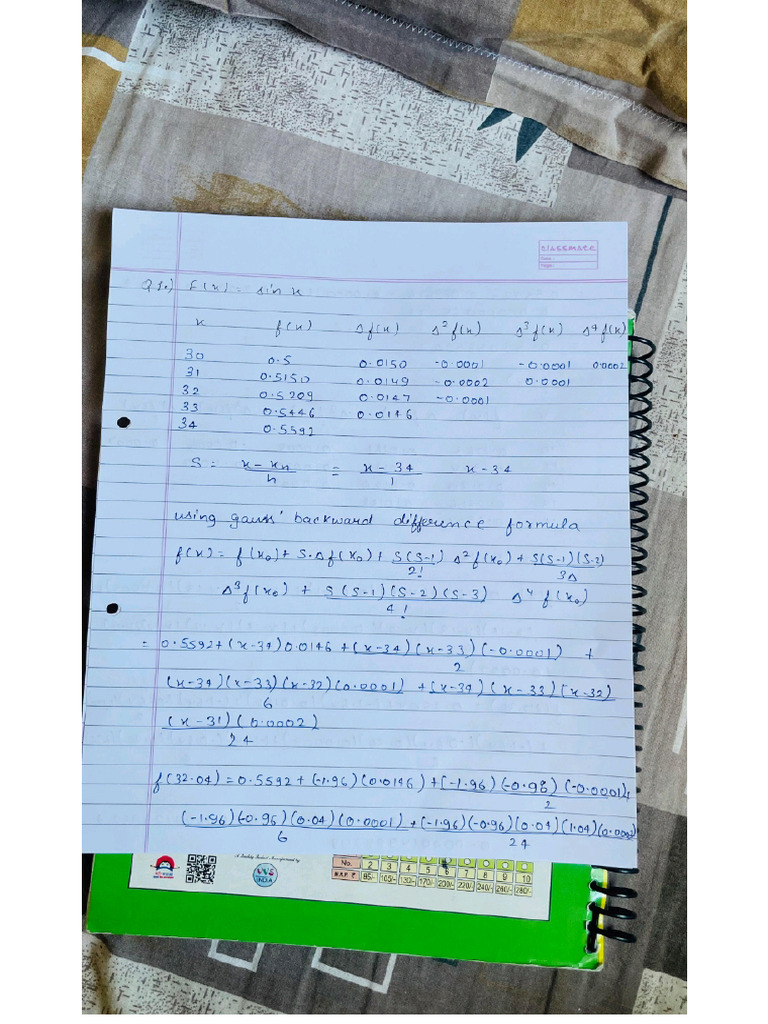 classmate
Date :
Page :
Q1.) f(x) = sin x
x f(x) Δf(x) Δ²f(x) Δ³f(x) Δ⁴f(x)
30 0.5 0.0150 -0.0001 -0.0001 0.0002
31 0.5150 0.0149 -0.0002 0.0001
32 0.5299 0.0147 -0.0001
33 0.5446 0.0146
34 0.5592
S = x - xn / h = x - 34 / 1 x - 34
using gauss' backward difference formula
f(x) = f(x₀) + S.Δf(x₀) + S(S-1)/2! Δ²f(x₀) + S(S-1)(S-2)/3!
Δ³f(x₀) + S(S-1)(S-2)(S-3)/4! Δ⁴f(x₀)
= 0.5592 + (x-34)0.0146 + (x-34)(x-33)(-0.0001)/2 +
(x-34)(x-33)(x-32)(0.0001)/6 + (x-34)(x-33)(x-32)
(x-31)(0.0002)/24
f(32.04) = 0.5592 + (-1.96)(0.0146) + (-1.96)(-0.96)(-0.0001)/2 +
(-1.96)(-0.96)(0.04)(0.0001)/6 + (-1.96)(-0.96)(0.04)(1.04)(0.0002)/24
INDIA
No. 2 3 4 5 6 7 8 9 10
M.R.P. ₹ 85/- 105/- 130/- 170/- 200/- 220/- 240/- 260/- 280/-